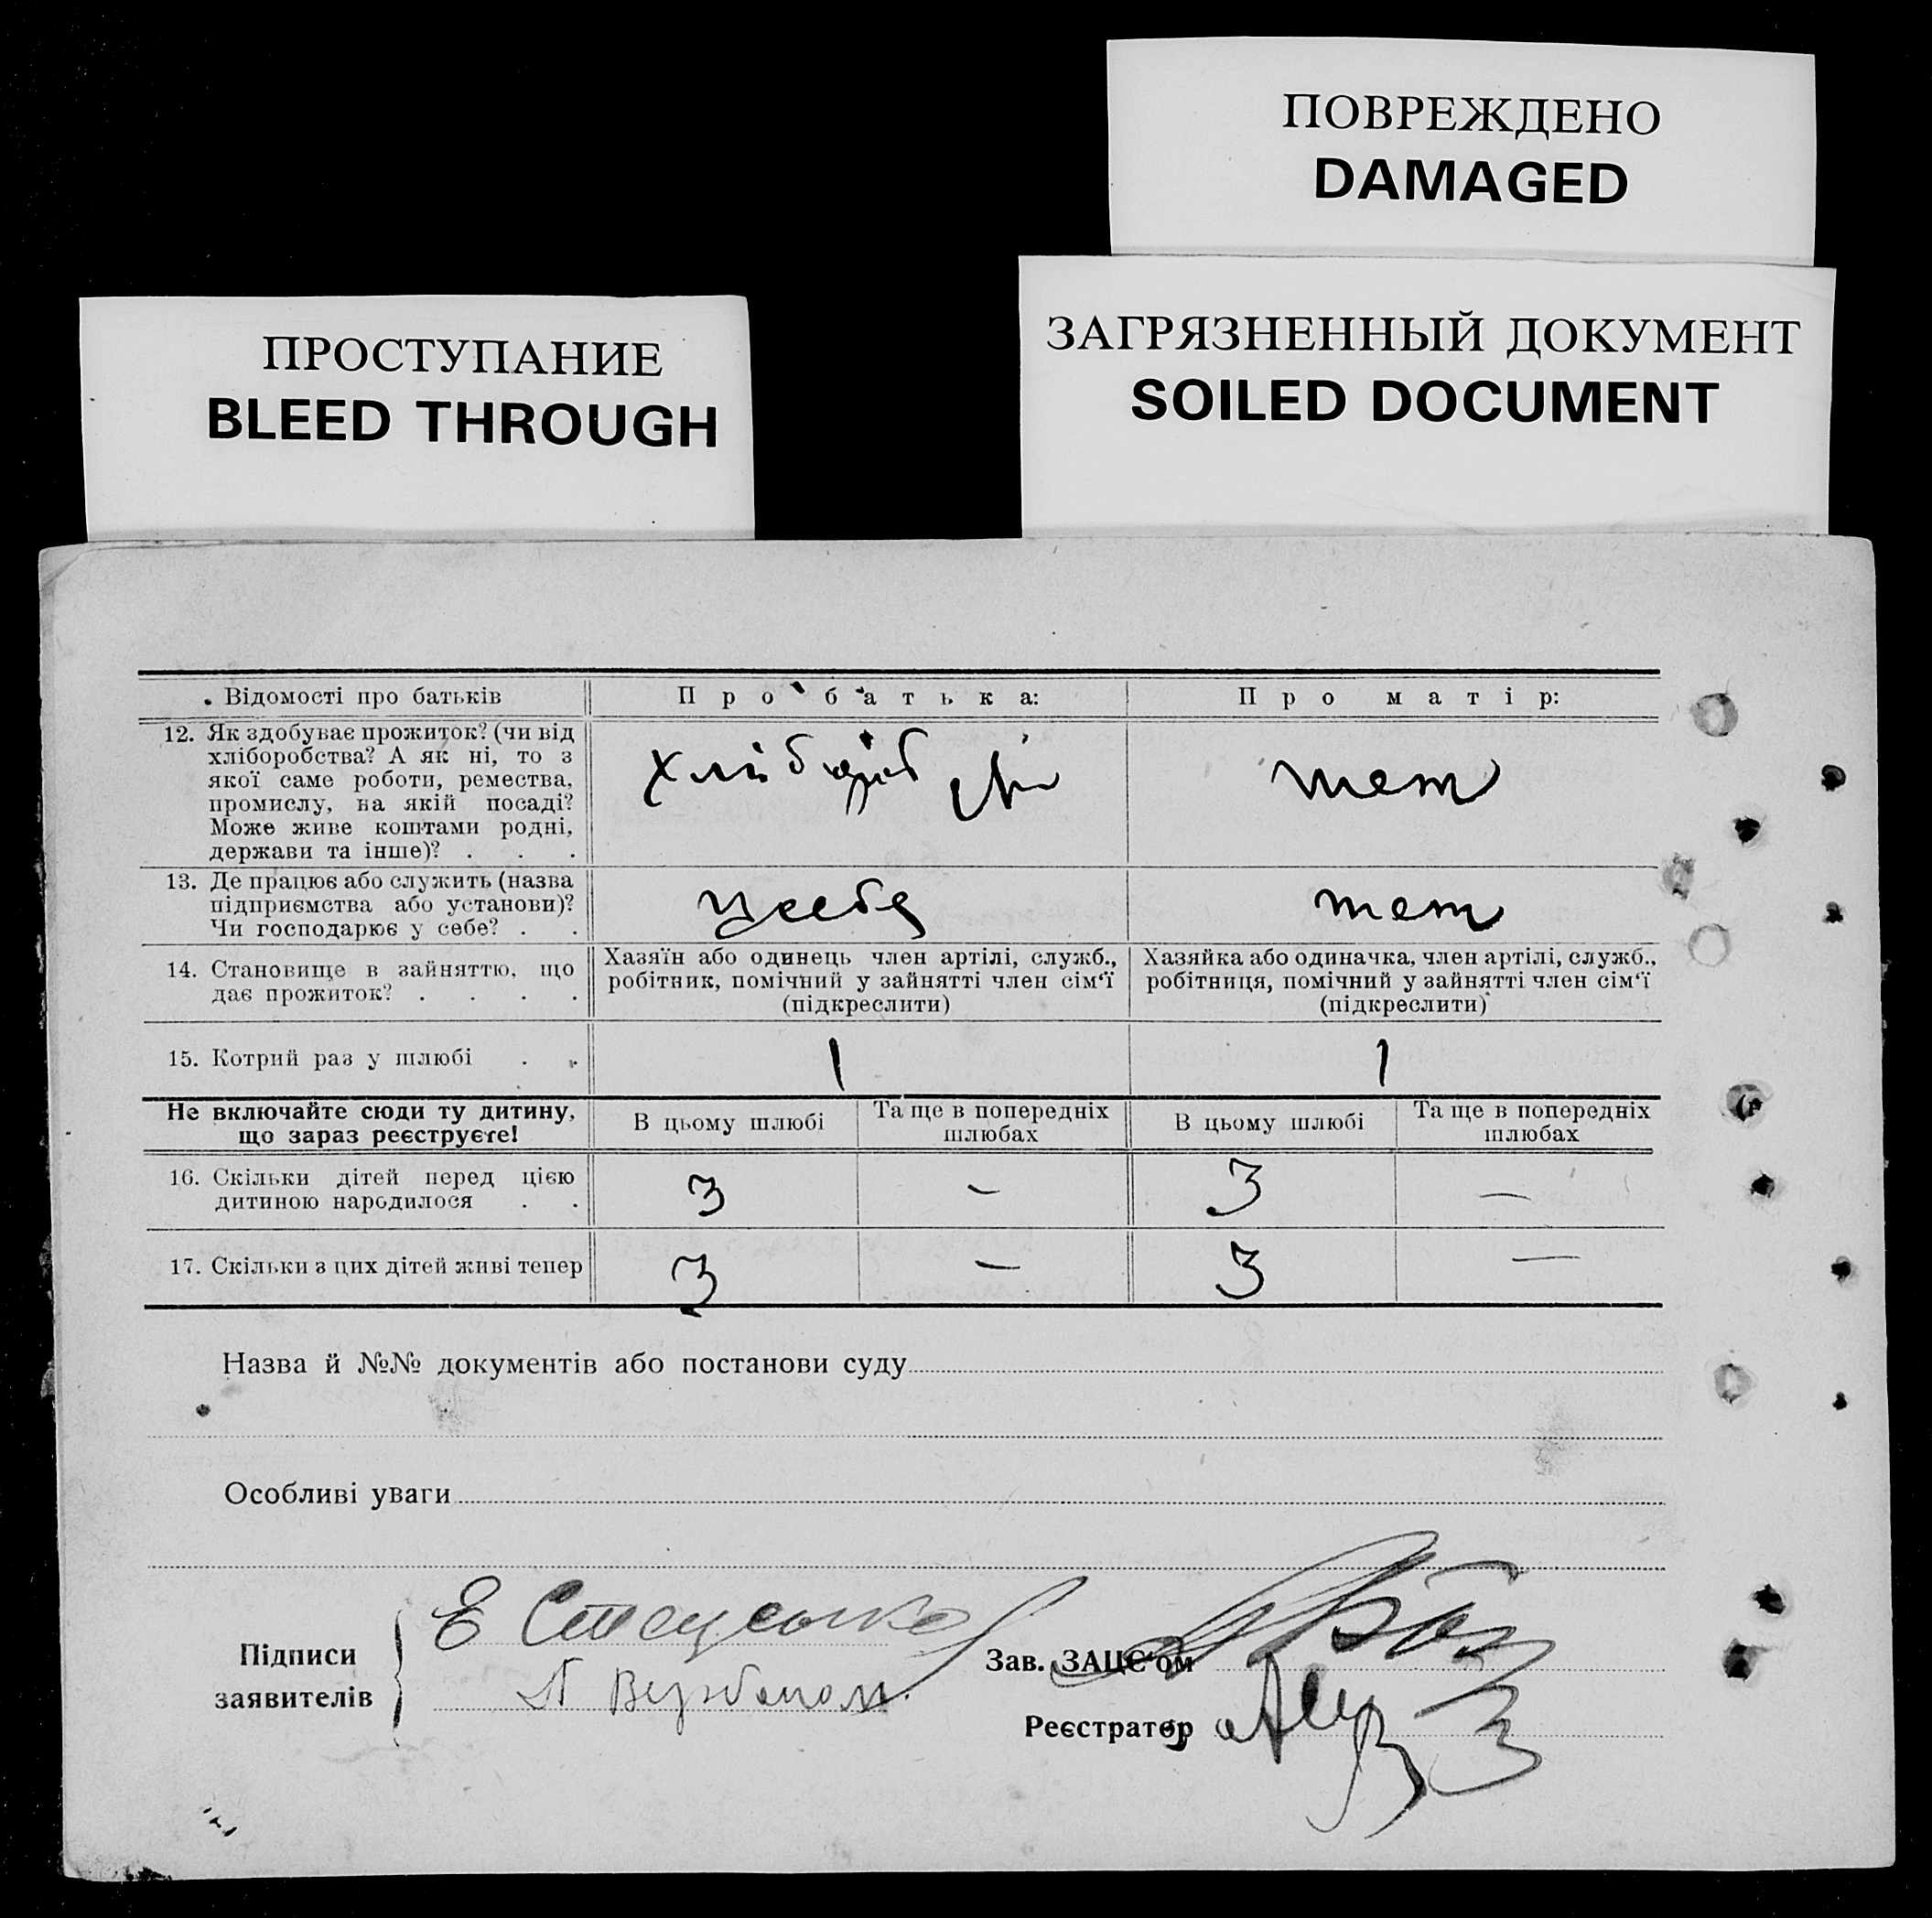 ПОВРЕЖДЕНО
DAMAGED
ПРОСТУПАНИЕ
BLEED THROUGH
ЗАГРЯЗНЕННЫЙ ДОКУМЕНТ
SOILED DOCUMENT
Відомості про батьків
Про батька:
Про матір:
12. Як здобуває прожиток? (чи від
хліборобства? А як ні, то з
якої саме роботи, ремества,
промислу, на якій посаді?
Може живе коштами родні,
держави та інше)? . . .
теж
13. Де працює або служить (назва
підприємства або установи)?
Чи господарює у себе? . .
у себе
теж
14. Становище в зайняттю, що
дає прожиток? . . . .
Хазяїн або одинець член артілі, служб.,
робітник, помічний у зайнятті член сім‘ї
(підкреслити)
Хазяйка або одиначка, член артілі, служб.,
робітниця, помічний у зайнятті член сім‘ї
(підкреслити)
15. Котрий раз у шлюбі . .
1
1
Не включайте сюди ту дитину,
що зараз реєструєте!
В цьому шлюбі
Та ще в попередніх
шлюбах
В цьому шлюбі
Та ще в попередніх
шлюбах
16. Скільки дітей перед цією
дитиною народилося . .
3
—
3
—
17. Скільки з цих дітей живі тепер
3
—
3
—
Назва й №№ документів або постанови суду
Особливі уваги
Підписи
заявителів
Е
Зав. ЗАЦС‘ом
Реєстратор